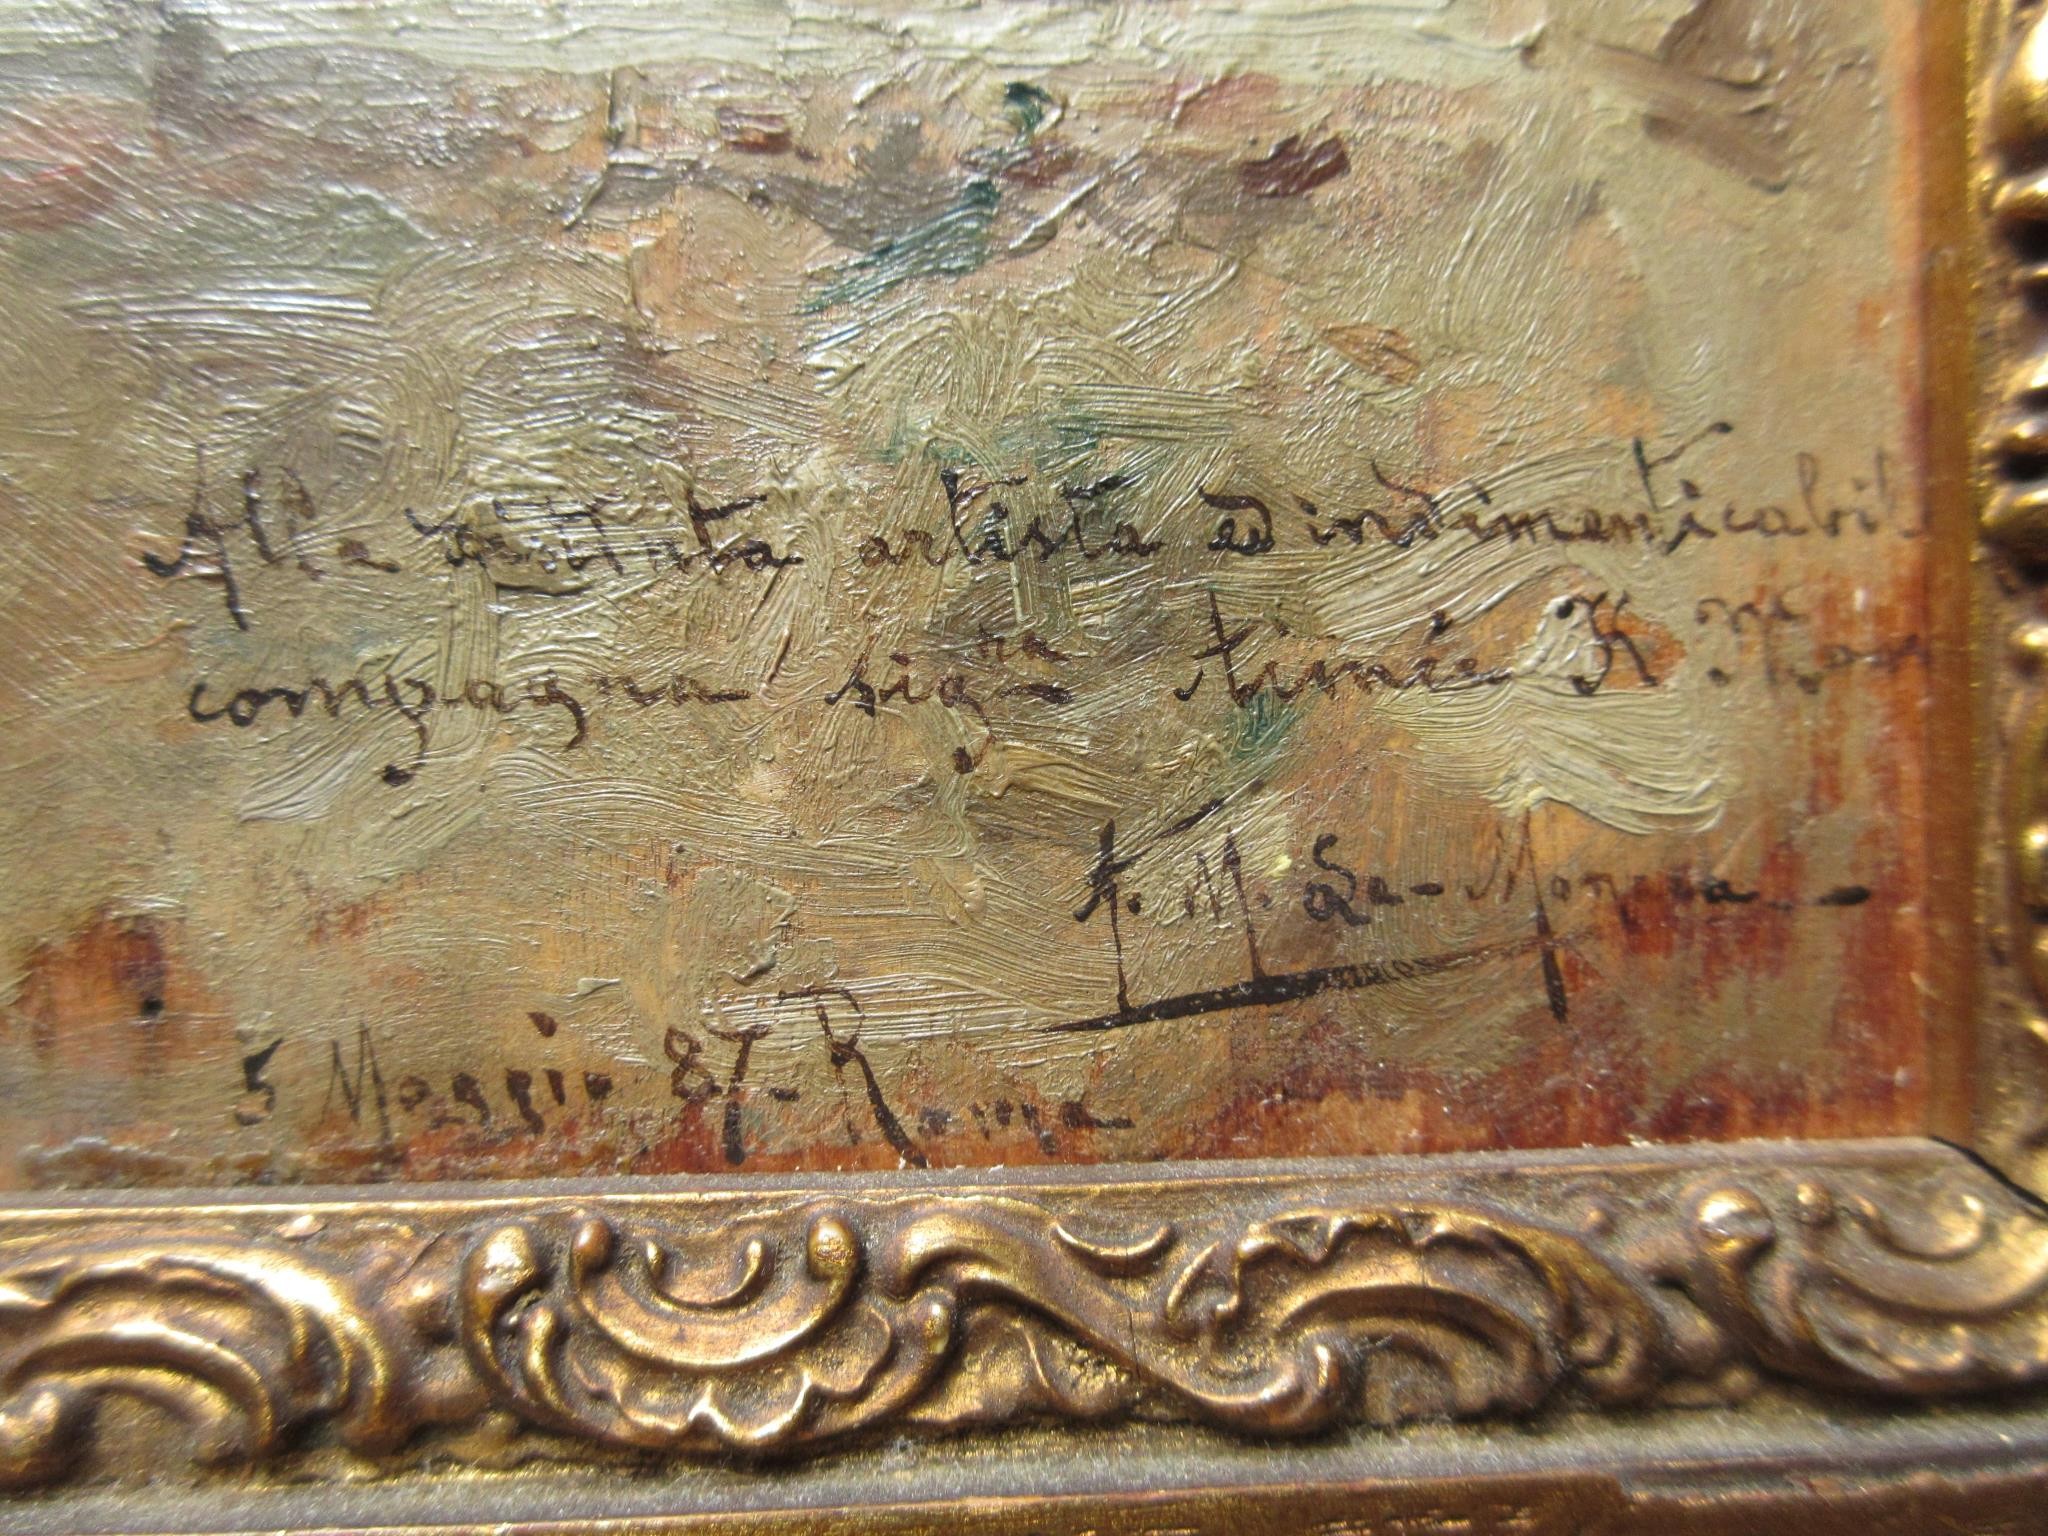 Alla artista ed indimenticabil
compagna sig.ra Aimée K
F. M. La-Monaca
5 Maggio 87- Roma